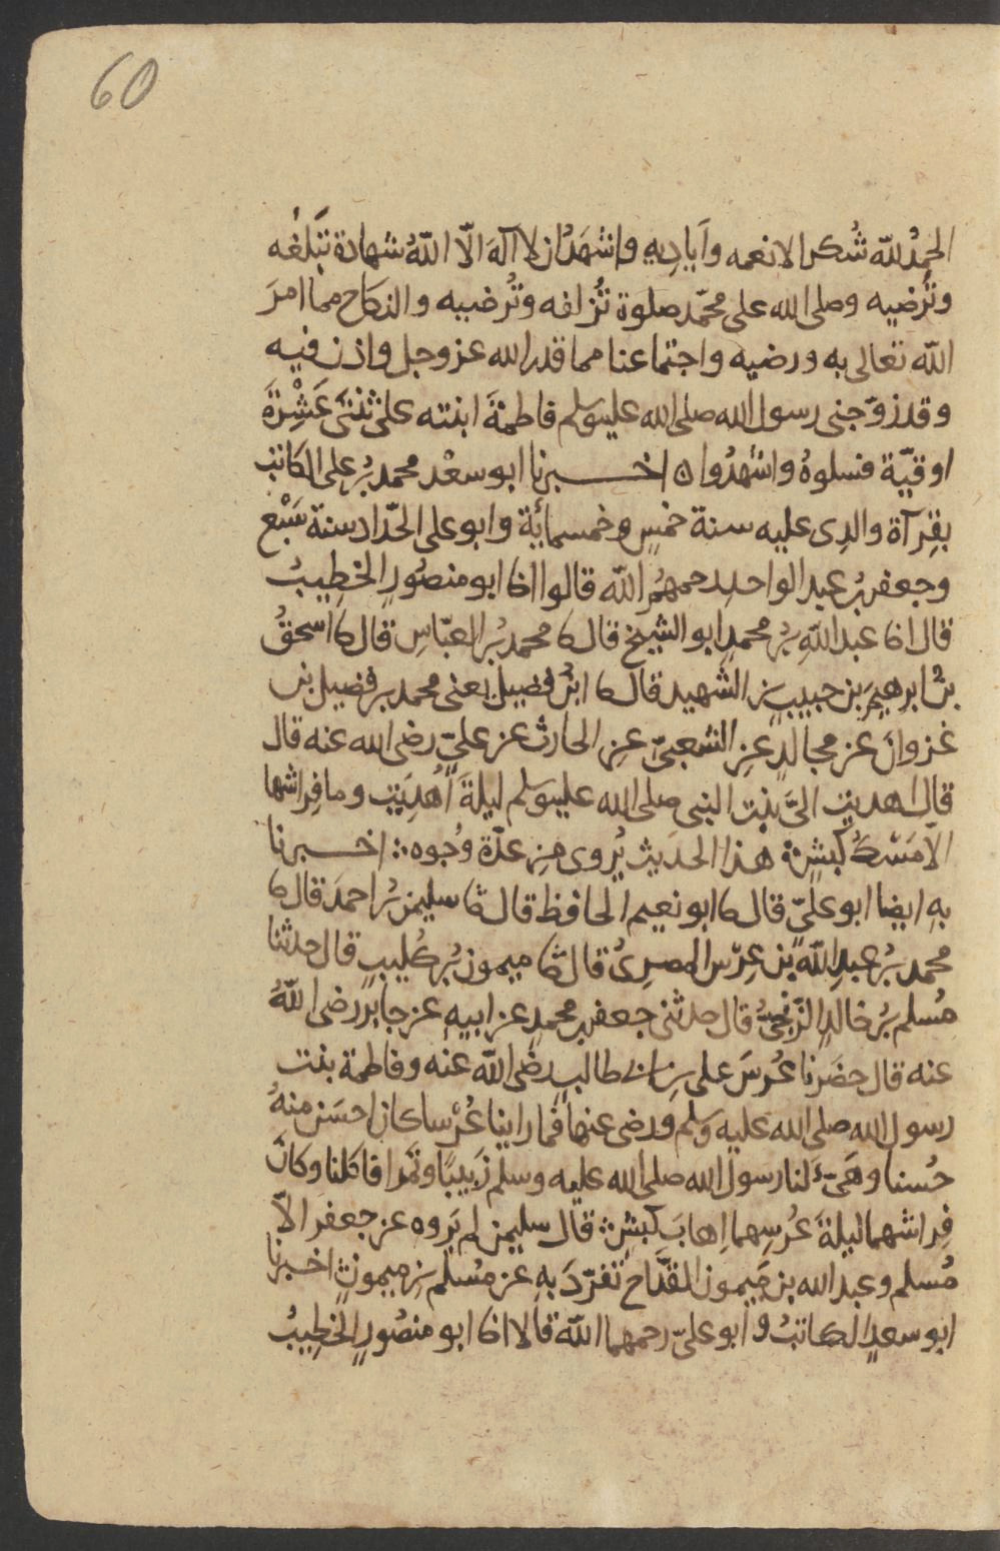 60
الحمدُ للّه شُكرا لانعمه وأَياديهِ واشهَدُ ان لا آلهَ الّا اللّهُ شهادة تبلغُه
وتُرضيه وصلى الله على محمّد صلوة تُزلفه وتُرضيه والنكاح مما امرَ
اللّه تعالى به ورضيه واجتماعنا مما قدر الله عز وجل واذن فيه
وقد زوّجنى رسول الله صلى الله عليه وسلم فاطمةَ ابنته على ثنتَى عَشْرَةَ
اوقيّة فسلوهُ واشهدُوا ن اخــبرنا ابو سعْد محمد بنُ على الكاتب
بقِرآة والدِى عليه سنة خمسٍ وخمسمايةٍ وابو على الحدّاد سنة سَبْع
وجعفر بنُ عبد الواحد رحمهُمُ اللّه قالوا انا ابو منصُورٍ الخطِيبُ
قال انا عبد اللّهِ بنُ محمدٍ ابو الشيخ قال نا محمد بنُ العبّاسِ قال نا اسحقُ
بنُ ابرهِيمَ بن حبيبٍ بن الشهيد قال نا ابنُ فضيل يعنى محمد بن فضيل بن
غزوانَ عن مجالدٍ عنِ الشعبىّ عنِ الحارث عن علىّ رضى الله عنه قال
قال اهديت الىَّ بنت النبى صلى الله عليه وسلم ليلةَ اُهْدِيَت وما فِراشها
الّا مَسْكُ كبشٍ هذا الحديث يُروى مِن عدّة وُجوه اخــبرنا
بهِ ايضا ابو علىّ قال نا ابو نعيم الحافظ قال ثنا سليمن بنُ احمدَ قال نا
محمد بنُ عبدِ اللّهِ بن عِرْس المصرِىُ قال ثنا ميمون بنُ كُليبٍ قال حدثنا
مُسلم بنُ خالدٍ الزَّنجىُّ قال حدثنى جعفر بن محمدٍ عن ابيهِ عن جابر رضى اللّهُ
عنه قال حضَرنا عُرسَ على بن ابى طالبٍ رضى اللّه عنه وفاطمة بنت
رسول الله صلى الله عليه وسلم ورضى عنها فما راينا عُرْسا كان احسَن منهُ
حُسنا وهَىَّءَ لنا رسول الله صلى الله عليه وسلم زَبيبًا وتمرا فاكلنا وكانَ
فِراشهما ليلةَ عُرسِهما اِهابَ كبشٍ قال سليمن لم يَروه عن جعفر الّا
مُسلم وعبد الله بن مَيمون القدّاح تفرّدَ بهِ عن مُسلم بن ميمونٍ اخــبرنا
ابو سعدٍ الكاتبُ وابو علىّ رحمهما اللّه قالا انا ابو منصُورٍ الخطِيبُ